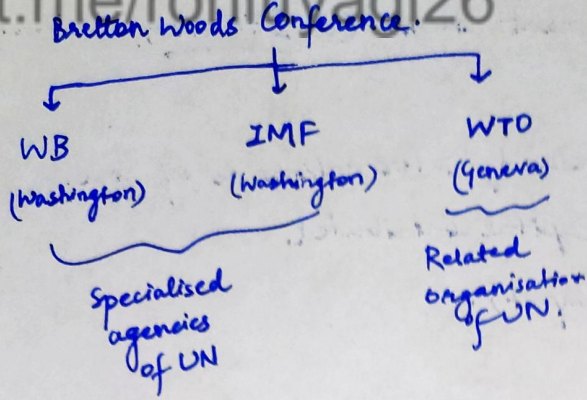 Bretton Woods Conference.
WB
(Washington)
IMF
(Washington)
WTO
(Geneva)
Specialised
agencies
of UN
Related
organisation
of UN.